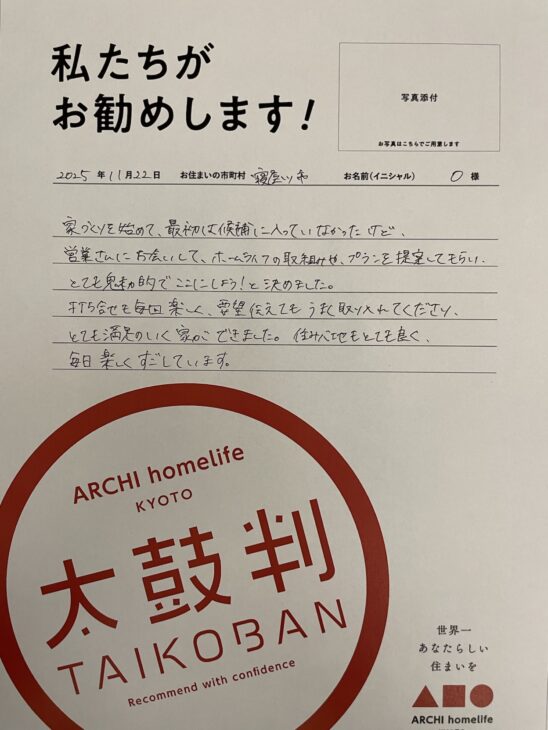 私たちが
お勧めします!
写真添付
お写真はこちらでご用意します
2025 年 11月 22日 お住まいの市町村 寝屋川市 お名前(イニシャル) O 様
家づくりを始めて、最初は候補に入っていなかったけど、
営業さんにお会いして、ホームライフの取組みや、プランを提案してもらい、
とても魅力的でここにしよう!と決めました。
打ち合せも毎回楽しく、要望伝えてもうまく取り入れてくださり、
とても満足のいく家ができました。住み心地もとても良く、
毎日楽しくすごしています。
ARCHI homelife
KYOTO
太鼓判
TAIKOBAN
Recommend with confidence
世界一
あなたらしい
住まいを
ARCHI homelife